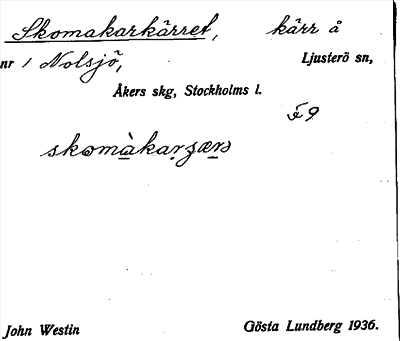 Skomakarkärret, kärr å
nr 1 Nolsjö, Ljusterö sn,
Åkers skg, Stockholms l.
F9
skomàkarʒærə
John Westin Gösta Lundberg 1936.